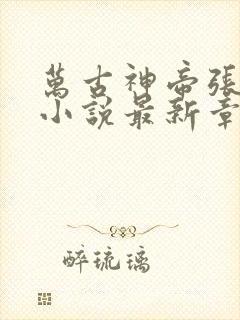 萬古神帝張
小說最新章
醉琉璃